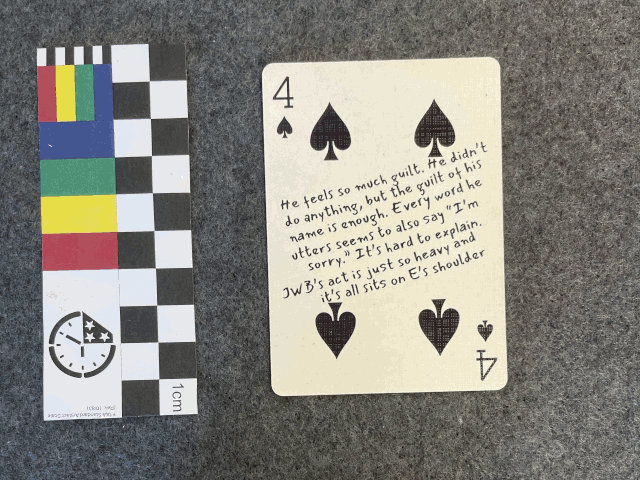 4
He feels so much guilt. He didn't
do anything, but the guilt of his
name is enough. Every word he
utters seems to also say "I'm
sorry." It's hard to explain.
JWB's act is just so heavy and
it's all sits on E's shoulder
4
1cm